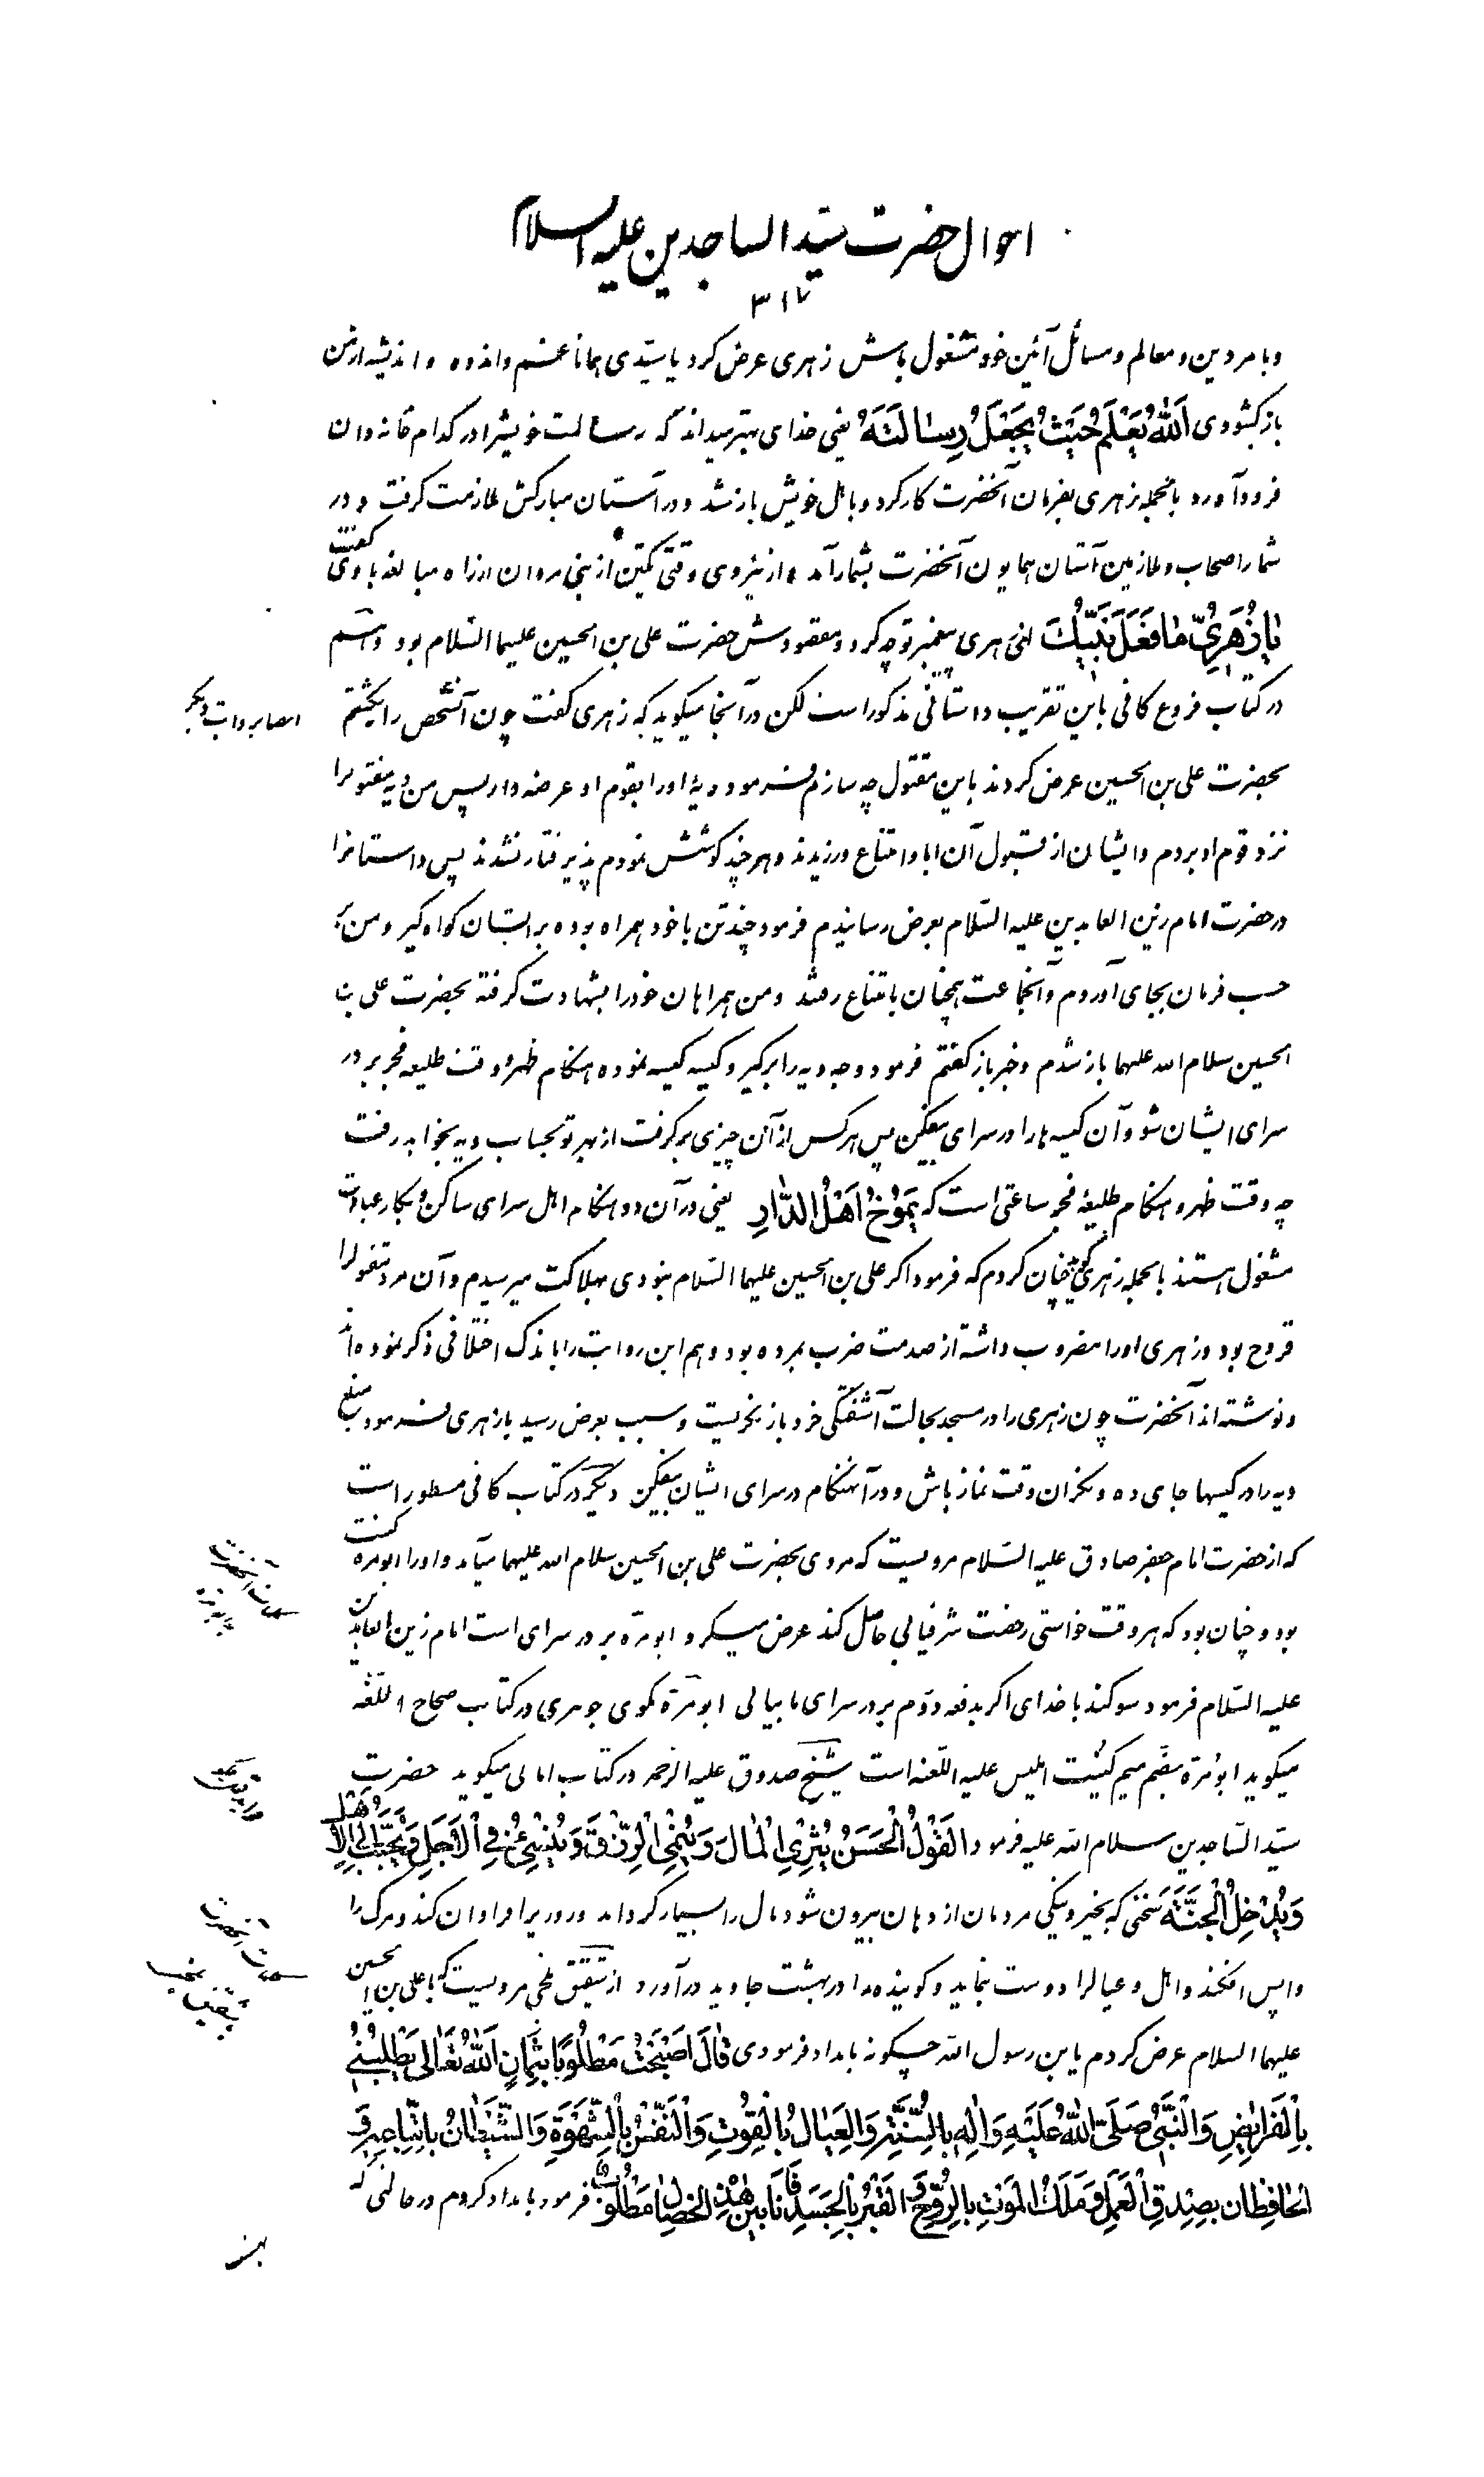 احوال حضرت سیّد الساجدین علیه السلام
۳۱۷
و بامر دین و معالم و مسائل آئین خود مشغول باش زهری عرض کرد یا سیّدی همانا غم و اندوه و اندیشه از من
باز گشودی اَللّٰهُ یَعْلَمُ حَیْثُ یَجْعَلُ رِسٰالَتَهُ یعنی خدای بهتر میداند که رسالت خویشرا در کدام خانه دان
فرود آورد بالجمله زهری بفرمان آنحضرت کار کرد و باهل خویش باز شد و در آستان مبارکش ملازمت گرفت و در
شمار اصحاب و ملازمین آستان همایون آنحضرت بشمار آمد و از نیروی وقتی یکتن از بنی مروان از راه مباغده با وی گفت
یٰا زُهَرِیُّ مٰا فَعَلَ نَبِیُّكَ ای زهری پیغمبر تو چه کرد و مقصودش حضرت علی بن الحسین علیهما السّلام بود و هم
در کتاب فروع کافی باین تقریب داستانی مذکور است لکن در آنجا میگوید که زهری گفت چون آنشخص را بکشتم
بحضرت علی بن الحسین عرض کردند باین مقتول چه سازم فرمود دیۀ او را بقوم او عرضه دار پس من دیه مقتولرا
نزد قوم او بردم و ایشان از قبول آن ابا و امتناع ورزیدند و هر چند کوشش نمودم پذیرفتار نشدند پس داستانرا
در حضرت امام زین العابدین علیه السّلام بعرض رسانیدم فرمود چند تن با خود همراه بوده بر ایشان گواه گیر و من نیز
حسب فرمان بجای آوردم و آنجماعت همچنان بامتناع رفتند و من همراهان خود را بشهادت گرفته بحضرت علی بن
الحسین سلام الله علیهما باز شدم و خبر باز گفتم فرمود وجه دیه را برگیر و کیسه کیسه نموده هنگام ظهر و وقت طلیعه فجر بر در
سرای ایشان شو و آن کیسه ها را در سرای بیفکن پس هر کس از آن چیزی برگرفت از بهر تو بحساب دیه بخواهد رفت
چه وقت ظهر و هنگام طلیعۀ فجر ساعتی است که یَمُوْجُ اَهْلُ الدّٰارِ یعنی در آن دو هنگام اهل سرای ساکن و بکار عبادت
مشغول هستند بالجمله زهری گوید چنان کردم که فرمود اگر علی بن الحسین علیهما السّلام نبودی بهلاکت میرسیدم و آن مرد مقتولرا
قروح بود و زهری او را مضروب داشته از صدمت ضرب بمرده بود و هم این روایت را باندک اختلافی ذکر نموده اند
و نوشته اند آنحضرت چون زهری را در مسجد بحالت آشفتگی خرد باز نگریست و سبب بعرض رسید با زهری فرمود مبلغ
دیه را در کیسها جای ده و نگران وقت نماز باش و در آنهنگام در سرای ایشان بیفکن دیگر در کتاب کافی مسطور است
که از حضرت امام جعفر صادق علیه السّلام مرویست که مردی بحضرت علی بن الحسین سلام الله علیهما میآمد و او را ابومره کنیت
بود و چنان بود که هر وقت خواستی رخصت شرفیابی حاصل کند عرض میکرد ابو مرّه بر در سرای است امام زین العابدین
علیه السّلام فرمود سوگند با خدای اگر بدفعه دوّم بر در سرای ما بیائی ابو مرّة نگوی جوهری در کتاب صحاح اللّغه
میگوید ابو مُرّه بضّم میم کنیت ابلیس علیه اللّعنه است شیخ صدوق علیه الرّحمه در کتاب امالی میگوید حضرت
سیّد السّاجدین سلام الله علیه فرمود اَلْقَوْلُ الْحَسَنُ یُثْرِی الْمٰالَ وَ یُنْمِی الرِّزْقَ وَ یُنْسِئُ فِی الْاَجَلِ وَ یُحَبِّبُ اِلَی الْاَهْلِ
وَ یُدْخِلُ الْجَنَّةَ سخنی که بخیر و نیکی مردمان از دهان بیرون شود مال را بسیار گرداند و روزیرا فراوان کند و مرگ را
واپس افکند و اهل و عیالرا دوست نماید و گوینده را در بهشت جاوید درآورد از شقیق بلخی مرویست که با علی بن الحسین
علیهما السلام عرض کردم یابن رسول الله چگونه بامداد فرمودی قٰالَ اَصْبَحْتُ مَطْلُوبًا بِثَمٰانٍ اَللّٰهُ تَعٰالٰی یَطْلُبُنِی
بِالْفَرٰایِضِ وَ النَّبِیُّ صَلَّی اللّٰهُ عَلَیْهِ وَ اٰلِهِ بِالسُّنَّةِ وَ الْعِیٰالُ بِالْقُوتِ وَ النَّفْسُ بِالشَّهْوَةِ وَ الشَّیْطٰانُ بِاتِّبٰاعِهِ وَ
الْحٰافِظٰانِ بِصِدْقِ الْعَمَلِ وَ مَلَكُ الْمَوْتِ بِالرُّوحِ وَ الْقَبْرُ بِالْجَسَدِ فَاَنَا بَیْنَ هٰذِهِ الْخِصٰالِ مَطْلُوبٌ فرمود بامداد کردم در حالتی که